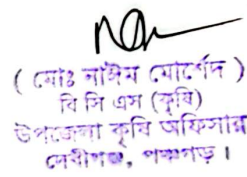 ( মোঃ নাঈম মোর্শেদ )
বি সি এস (কৃষি)
উপজেলা কৃষি অফিসার
দেবীগঞ্জ, পঞ্চগড়।